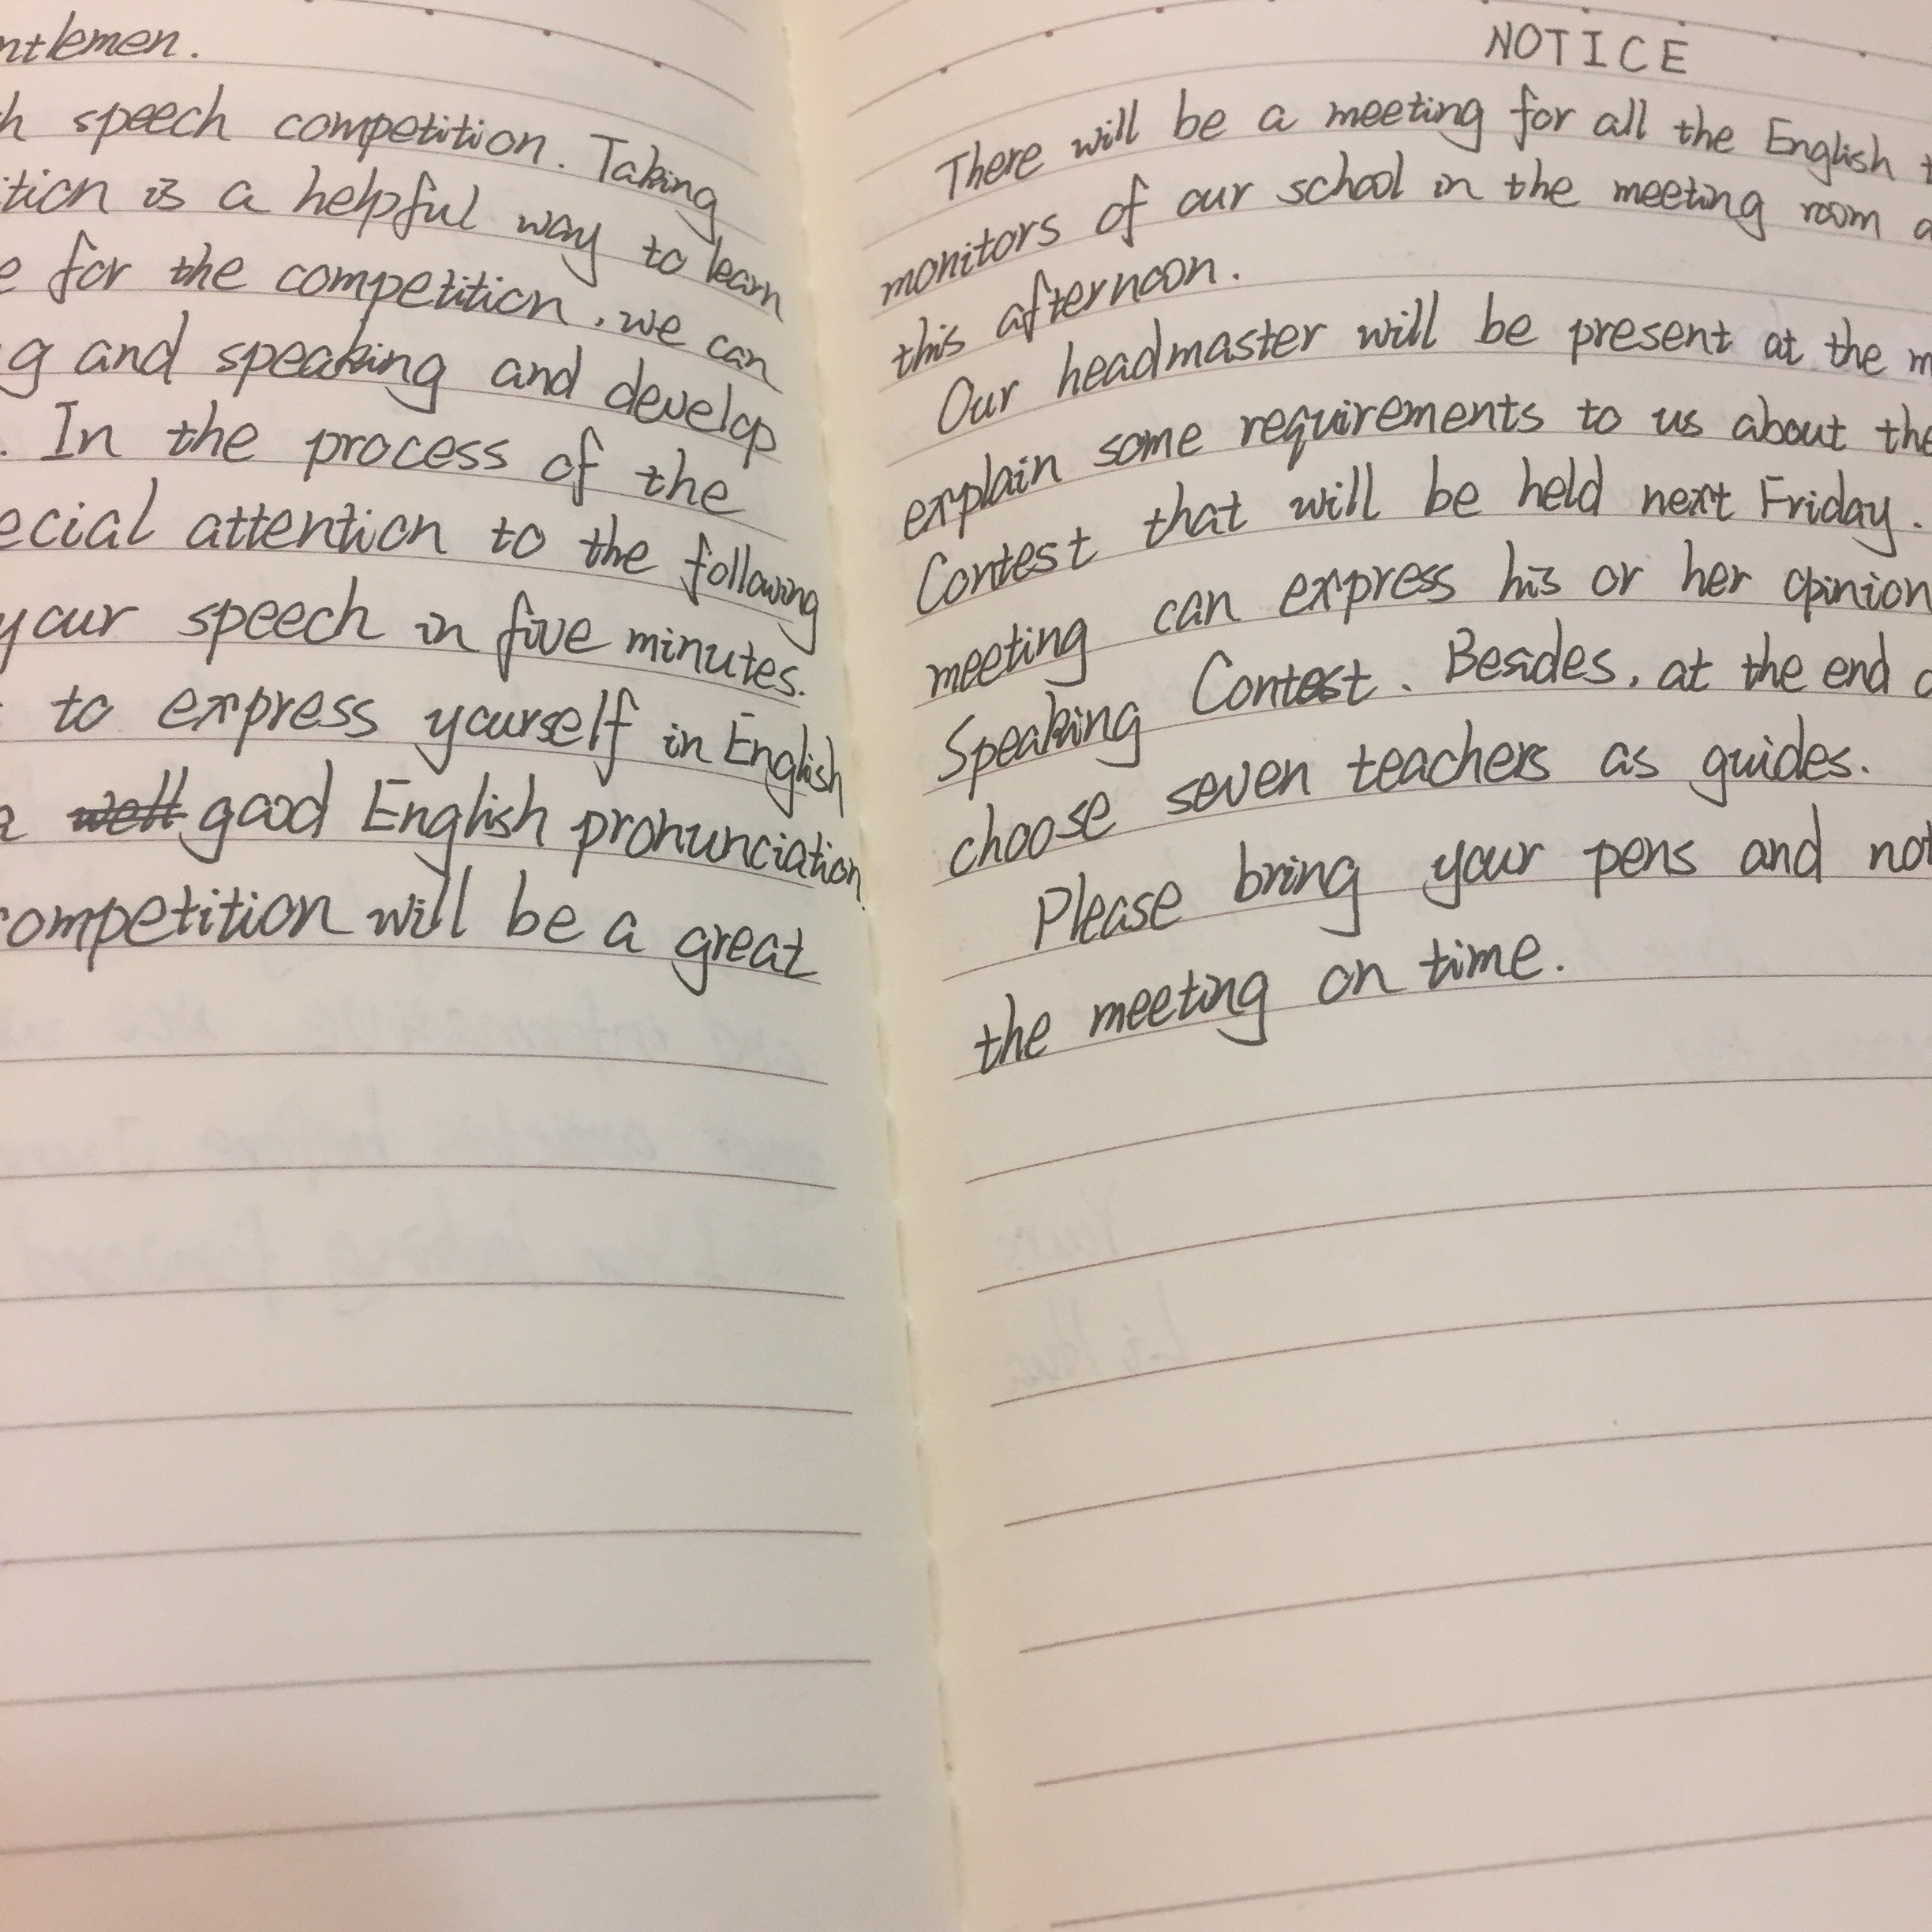 ntlemen.
h speech competition. Taking
ition is a helpful way to learn
e for the competition, we can
g and speaking and develop
. In the process of the
ecial attention to the following
your speech in five minutes.
to express yourself in English
a well good English pronunciation.
competition will be a great
NOTICE
There will be a meeting for all the English t
monitors of our school in the meeting room a
this afternoon.
Our headmaster will be present at the m
explain some requirements to us about the
Contest that will be held next Friday.
meeting can express his or her opinion
Speaking Contest. Besides, at the end o
choose seven teachers as guides.
Please bring your pens and not
the meeting on time.